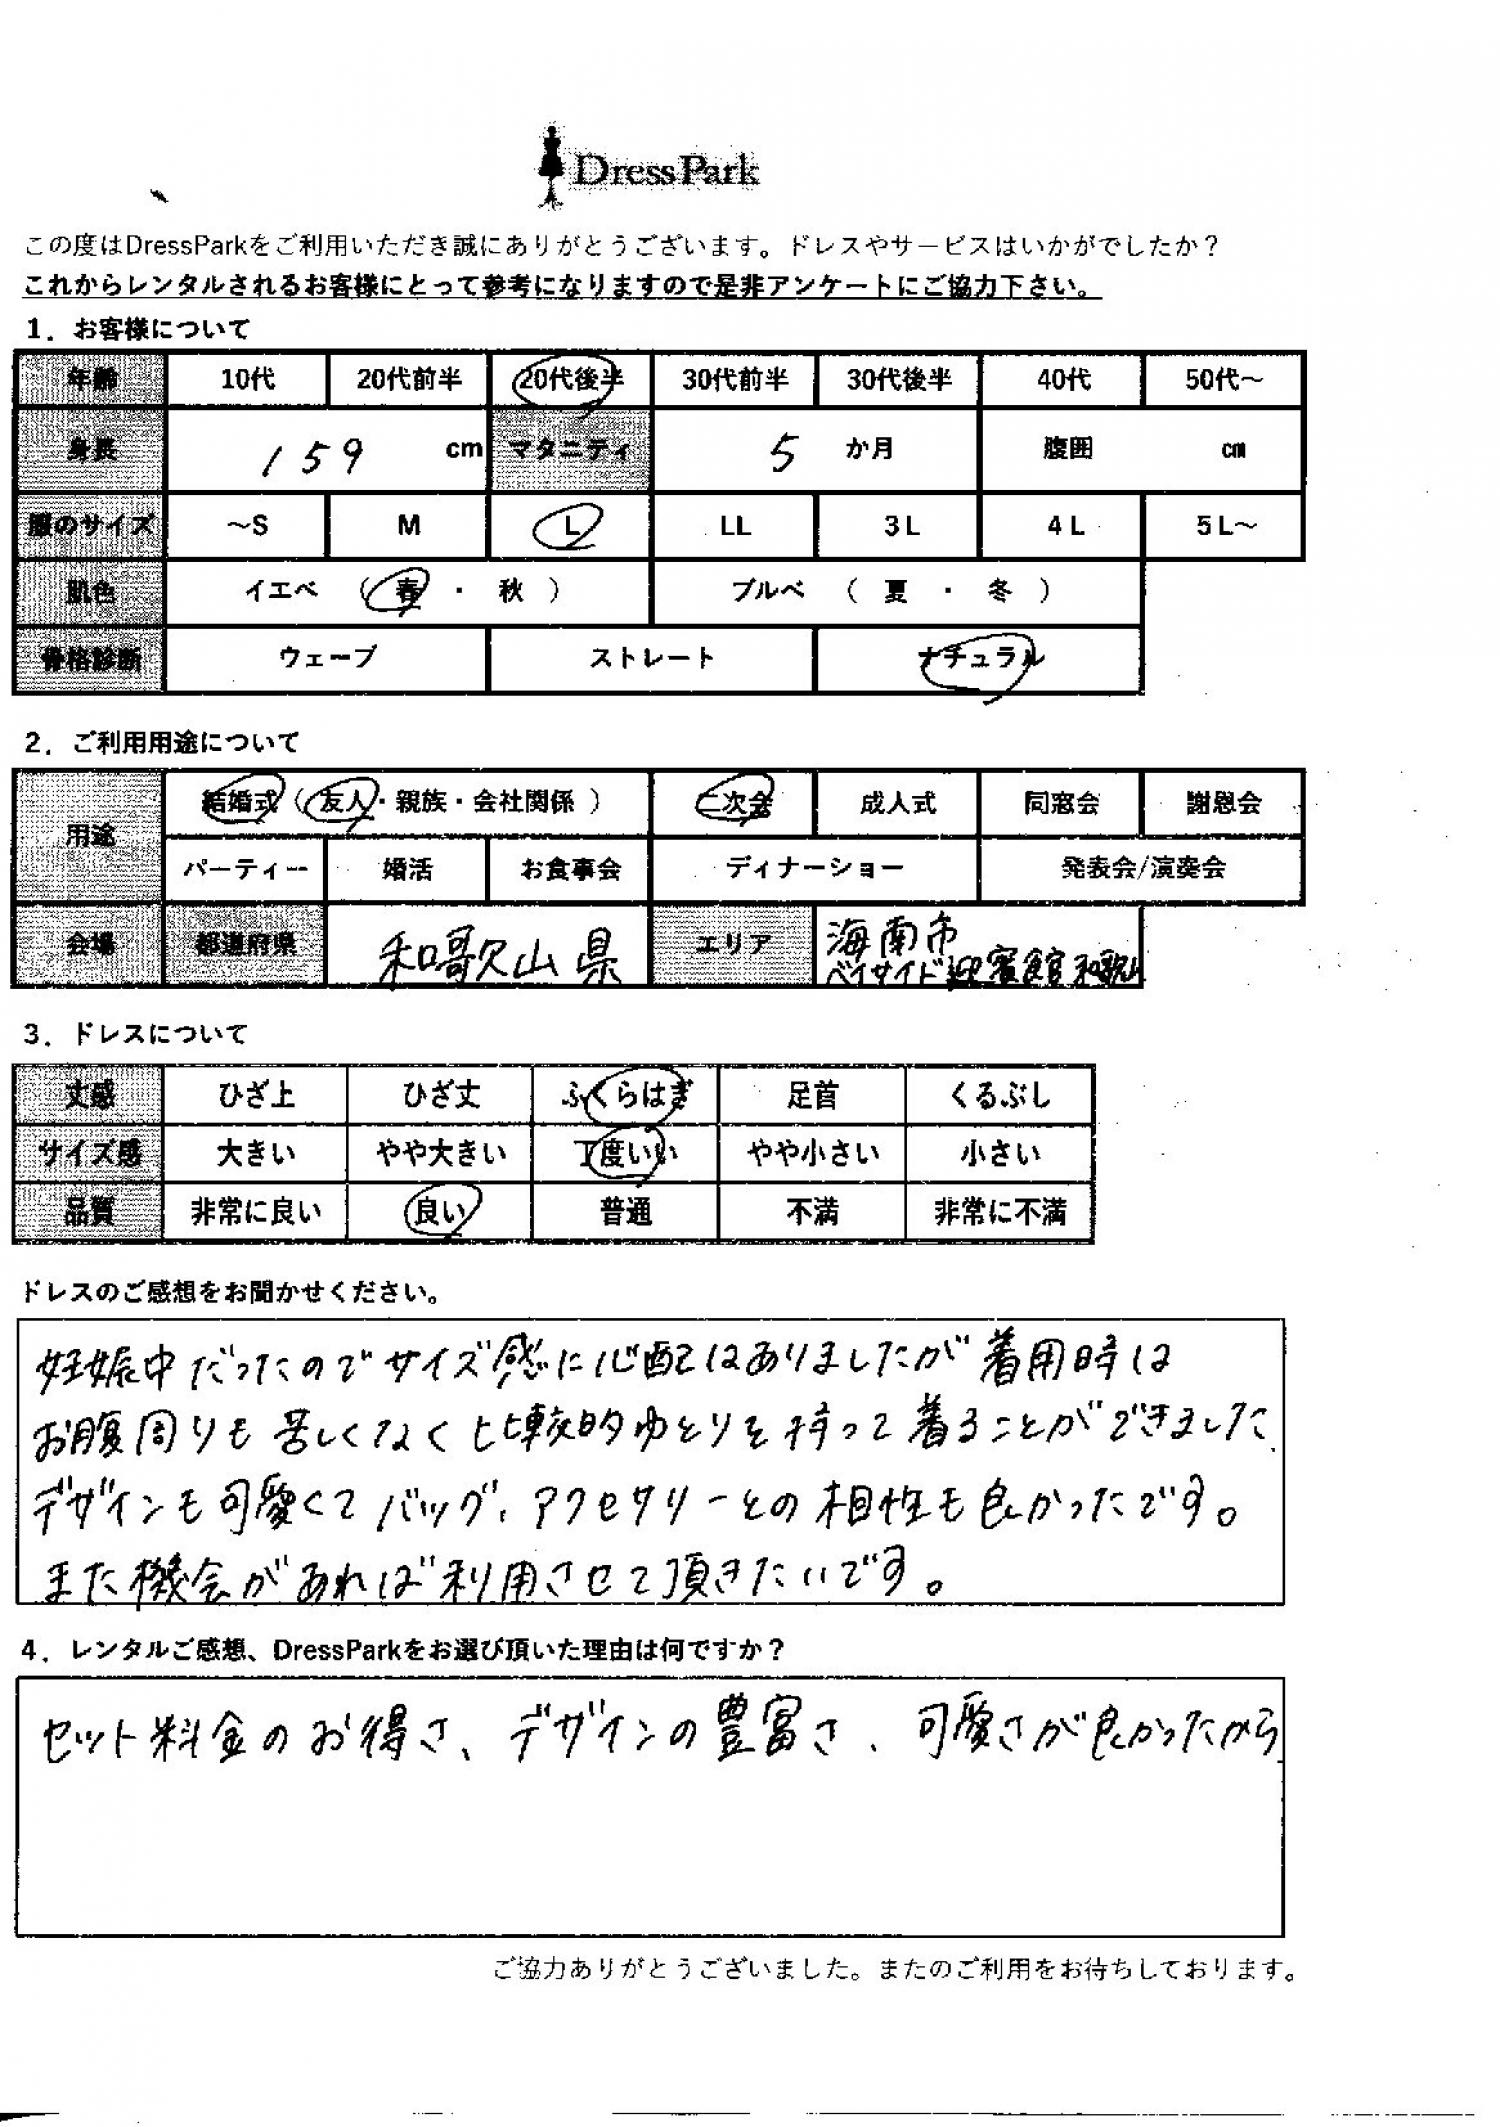 DressPark
この度はDressParkをご利用いただき誠にありがとうございます。ドレスやサービスはいかがでしたか？
これからレンタルされるお客様にとって参考になりますので是非アンケートにご協力下さい。
1．お客様について
年齢 10代 20代前半 20代後半 30代前半 30代後半 40代 50代～
身長 159 cm マタニティ 5 か月 腹囲 ㎝
服のサイズ ～S M L LL 3L 4L 5L～
肌色 イエベ （ 春 ・ 秋 ） ブルベ （ 夏 ・ 冬 ）
骨格診断 ウェーブ ストレート ナチュラル
2．ご利用用途について
用途 結婚式（ 友人・親族・会社関係 ） 二次会 成人式 同窓会 謝恩会
パーティー 婚活 お食事会 ディナーショー 発表会/演奏会
会場 都道府県 和歌山県 エリア 海南市
ベイサイド迎賓館和歌山
3．ドレスについて
丈感 ひざ上 ひざ丈 ふくらはぎ 足首 くるぶし
サイズ感 大きい やや大きい 丁度いい やや小さい 小さい
品質 非常に良い 良い 普通 不満 非常に不満
ドレスのご感想をお聞かせください。
妊娠中だったのでサイズ感に心配はありましたが着用時は
お腹周りも苦しくなく比較的ゆとりを持って着ることができました.
デザインも可愛くてバッグ、アクセサリーとの相性も良かったです。
また機会があれば利用させて頂きたいです。
4．レンタルご感想、DressParkをお選び頂いた理由は何ですか？
セット料金のお得さ、デザインの豊富さ、可愛さが良かったから
ご協力ありがとうございました。またのご利用をお待ちしております。